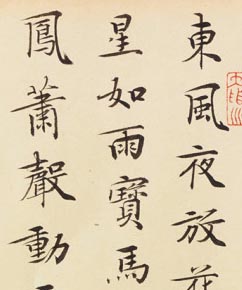 東風夜放花
星如雨寶馬
鳳簫聲動